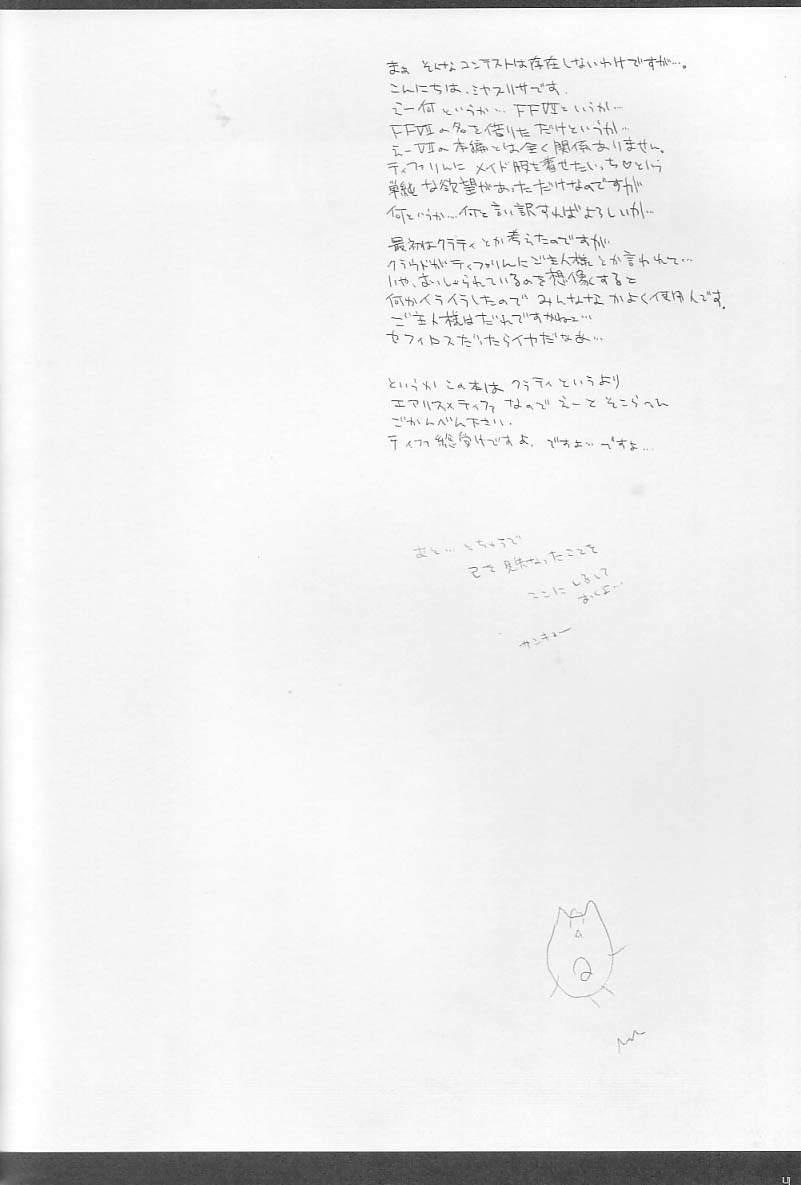 まぁ そんなコンテストは存在しないわけですが…。
こんにちは、ミヤスリサです.
えー何というか… FFⅦというか…
FFⅦの名を借りただけというか…
えーⅦの本編とは全く関係ありません。
ティファりんに メイド服を着せたいっち♡という
単純な欲望があっただけなのですが
何というか…何と言い訳すればよろしいか…
最初はクラティとか考えたのですが…
クラウドがティファりんにご主人様とか言われて…
いや、おっしゃられているのを想像すると
何かイライラしたので みんななかよく使用人です。
ご主人様はだれですかねェ…
セフィロスだったらイヤだなあ…
というか この本は クラティというより
エアリス×ティファ なので えーと そこらへん
ごかんべん下さい.
ティファ総受けですよ. ですよ… ですよ…
あと… とちゅうで
己を見失なったことを
ここに しるして
おくよ…
サンキュー